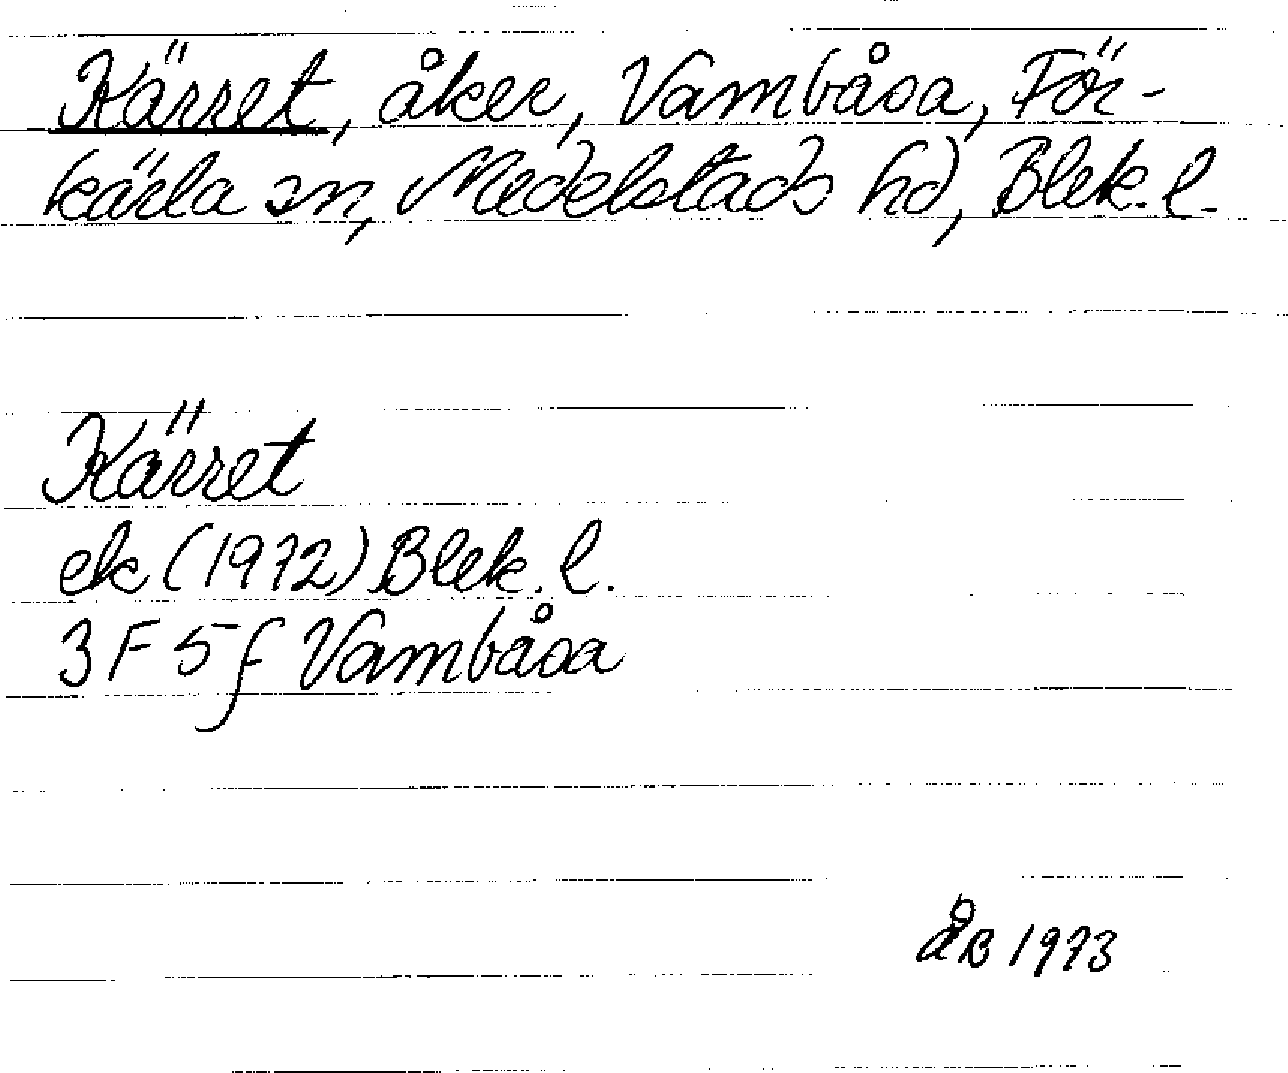 Kärret, åker, Vambåsa, För-
kärla sn, Medelstads hd, Blek. l.
Kärret
ek (1972) Blek. l.
3 F 5 f Vambåsa
ÅB 1973